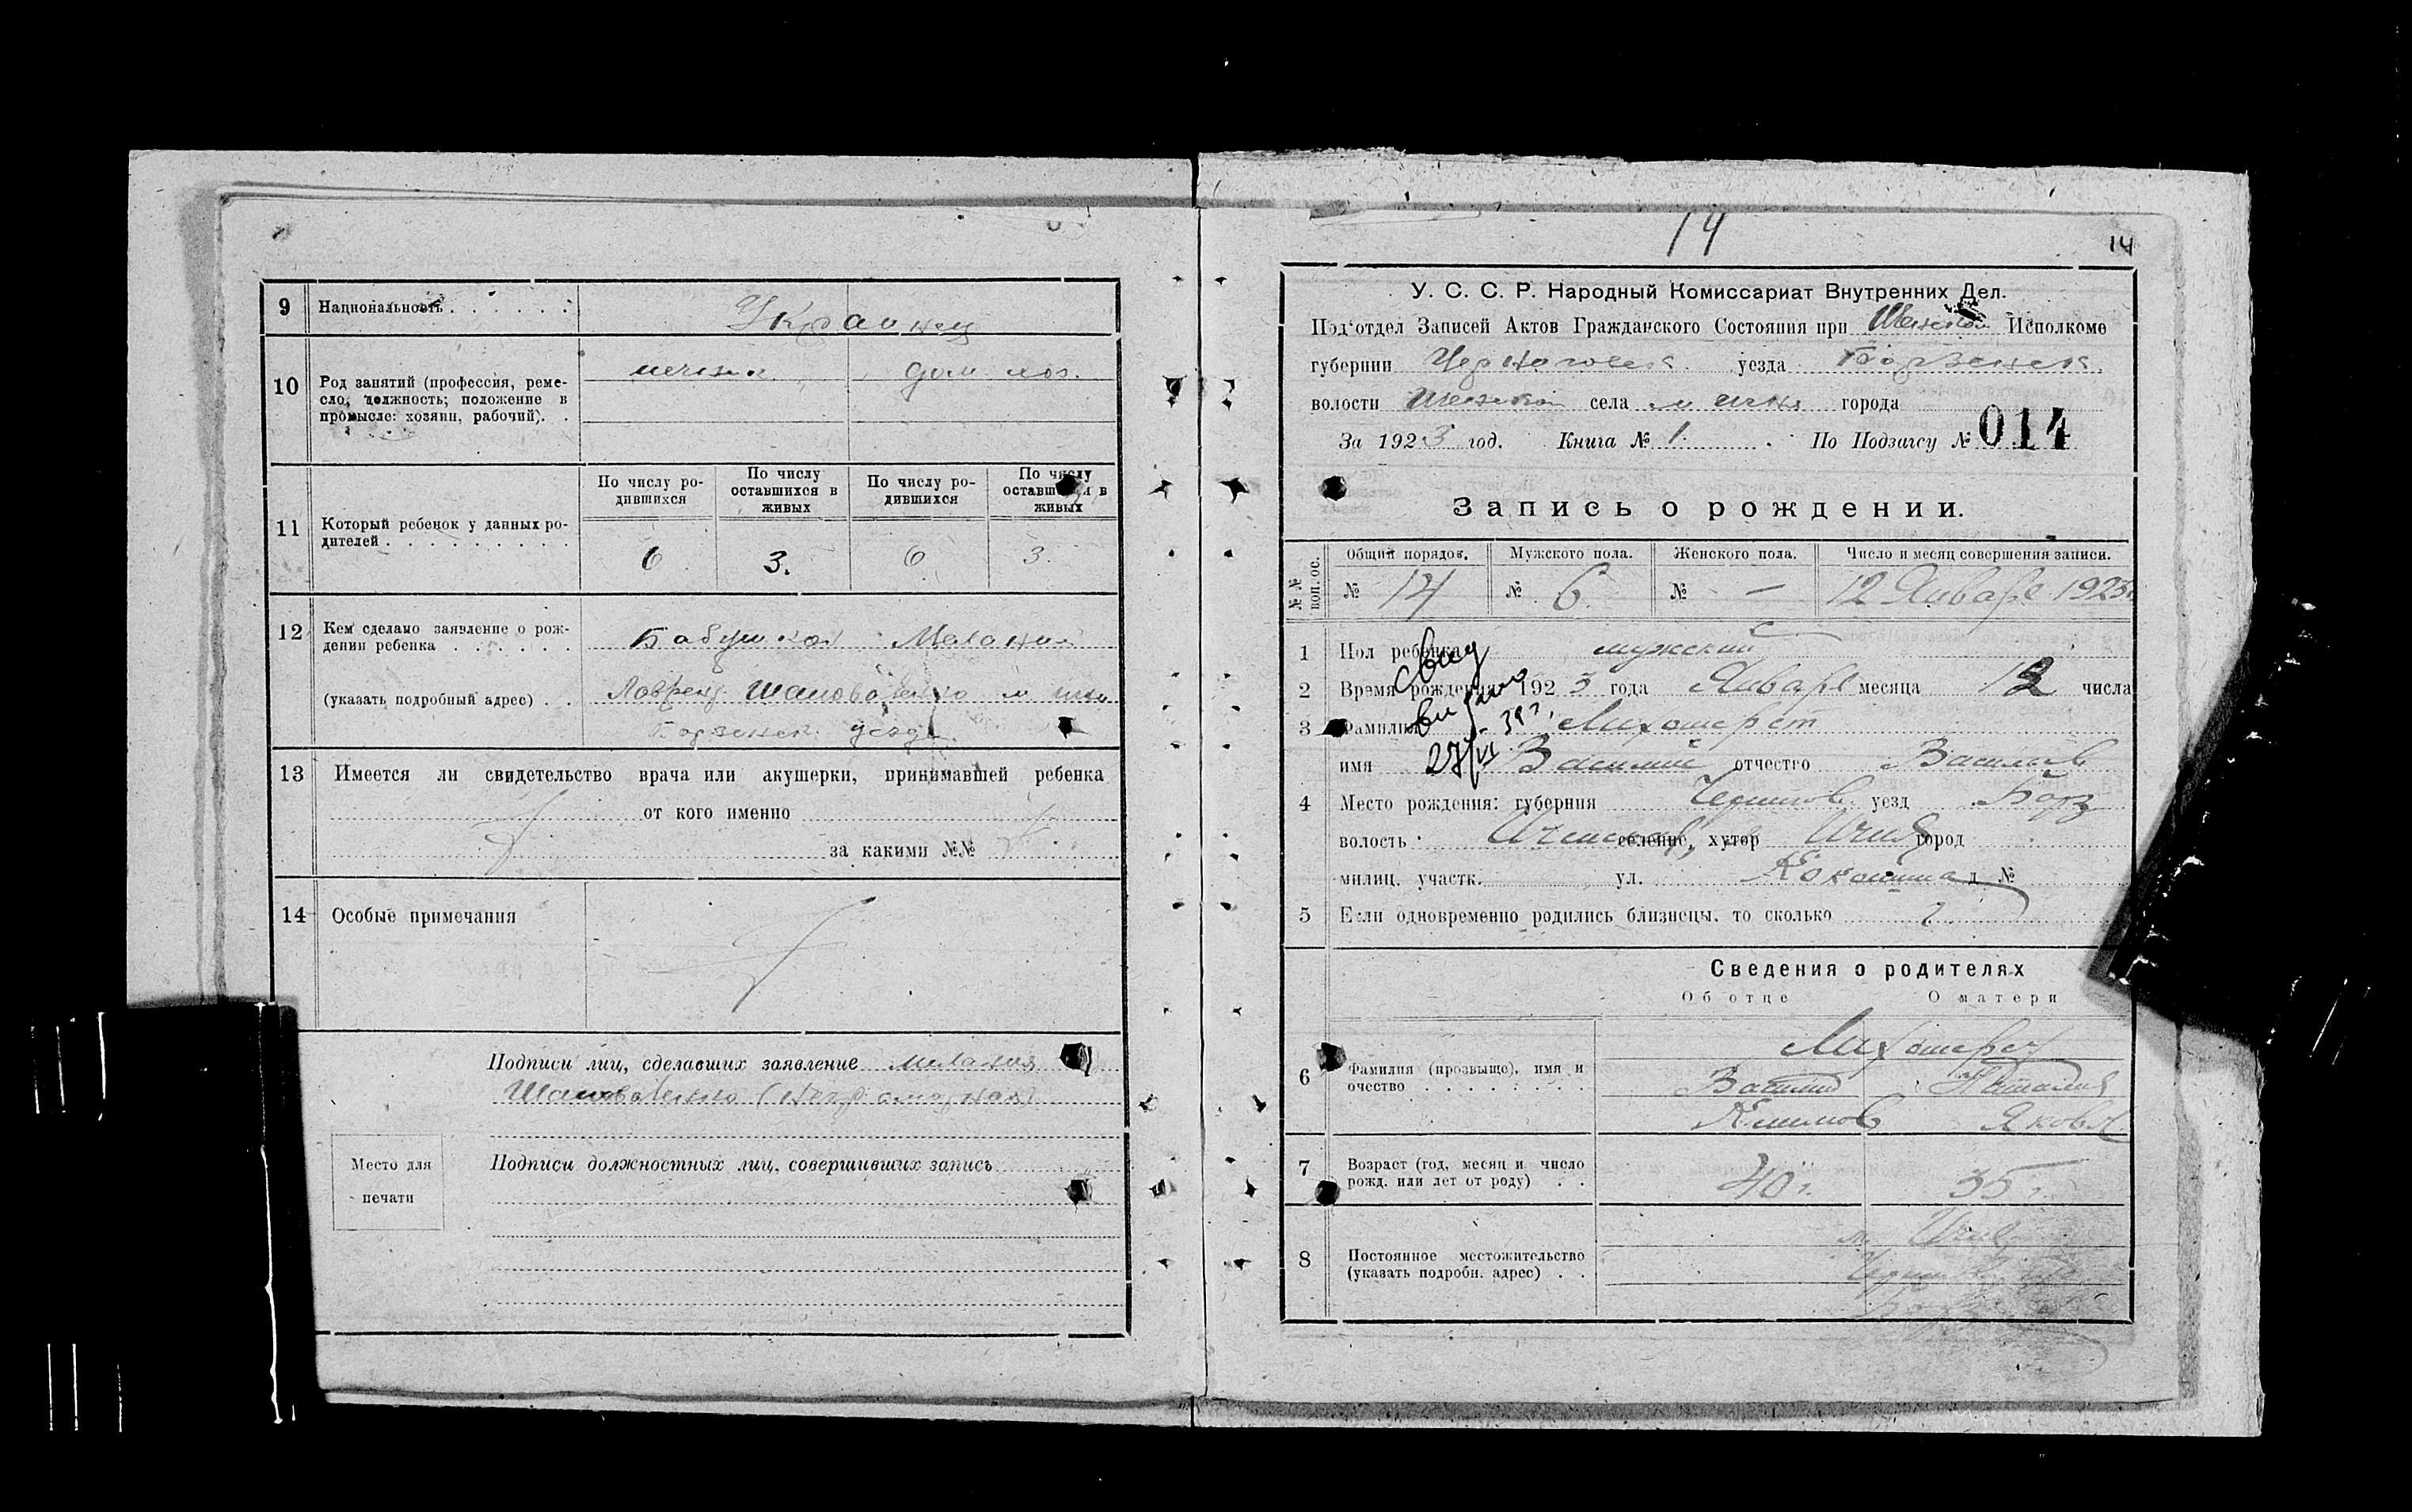 9 Национальность . . . . . . Украинец
10 Род занятий (профессия, реме-
сло, должность; положение в
промысле: хозяин, рабочий). .
дом хоз.
По числу ро-
дившихся
По числу
оставшихся в
живых
По числу ро-
дившихся
По числу
оставшихся в
живых
11 Который ребенок у данных ро-
дителей . . . . . . . . .
6 3. 6 3.
12 Кем сделано заявление о рож-
дении ребенка . . . . . .
Бабушкой Мелания
(указать подробный адрес) . .
Шаповаленко м
Борзенск. уезда
13 Имеется ли свидетельство врача или акушерки, принимавшей ребенка
от кого именно
за какими №№
14 Особые примечания
Подписи лиц, сделавших заявление Мелания
Шаповаленко (неграмотная)
Место для
печати
Подписи должностных лиц, совершивших запись
14
14
У. С. С. Р. Народный Комиссариат Внутренних Дел.
Под'отдел Записей Актов Гражданского Состояния при Исполкоме
губернии уезда Борзенск.
волости села м Ичня города
За 1923 год. Книга № 1. По Подзагсу № 014
Запись о рождении.
№№ воп. ос.
Общий порядов. Мужского пола. Женского пола. Число и месяц совершения записи.
№ 14 № 6 № — 12 Января 1923г.
1 Пол ребенка мужской
2 Время рождения 1923 года Января месяца 12 числа
3 Фамилия Лихошерст
имя Василий отчество Васильев
свид
видано
27/VI - 39 г.
4 Место рождения: губерния Чернигов. уезд Борз
волость селение, хутор Ичня город
милиц. участк. ул. д №
5 Если одновременно родились близнецы, то сколько
Сведения о родителях
Об отце О матери
6 Фамилия (прозвище), имя и
очество . . . . . . . .
Лихошерст
Василий Наталия
Яковл
7 Возраст (год, месяц и число
рожд. или лет от роду) . .
40 г. 35 г.
8 Постоянное местожительство
(указать подробн. адрес) . .
м. Ичня